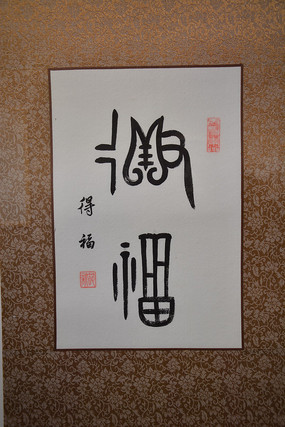 得福
得福